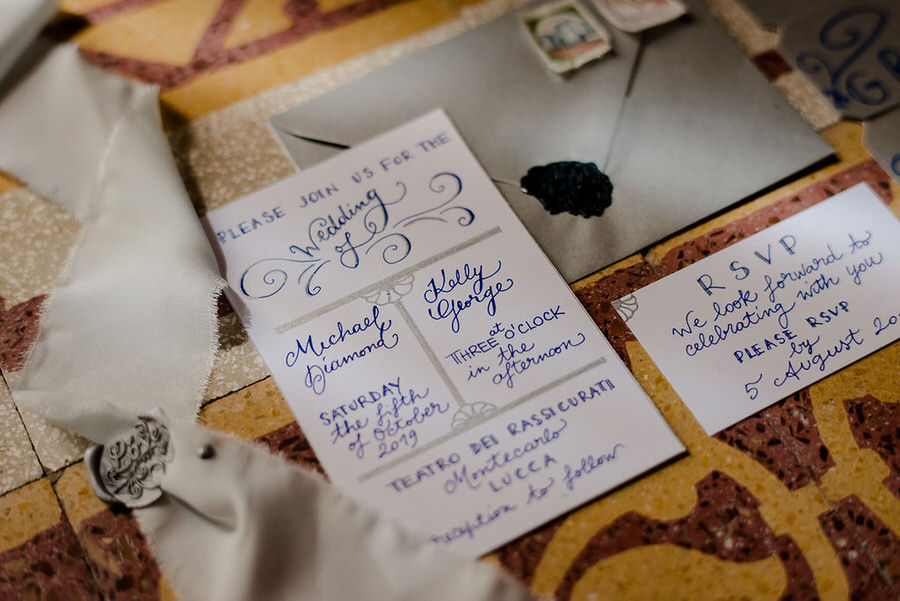 PLEASE JOIN US FOR THE
Wedding
of
Michael
Diamond
Kelly
George
SATURDAY
the fifth
of October
2019
at
THREE O'CLOCK
in the
afternoon
TEATRO DEI RASSICURATI
Montecarlo
LUCCA
reception to follow
RSVP
We look forward to
celebrating with you
PLEASE RSVP
by
5 August 20
Love